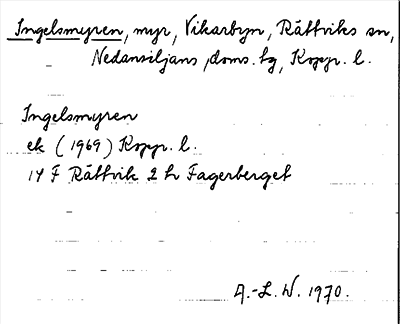 Ingelsmyren, myr, Vikarbyn, Rättviks sn,
Nedansiljans doms. hg, Kopp. l.
Ingelsmyren
ek (1969) Kopp. l.
14 F Rättvik 2 h Fagerberget
A.-L. W. 1970.